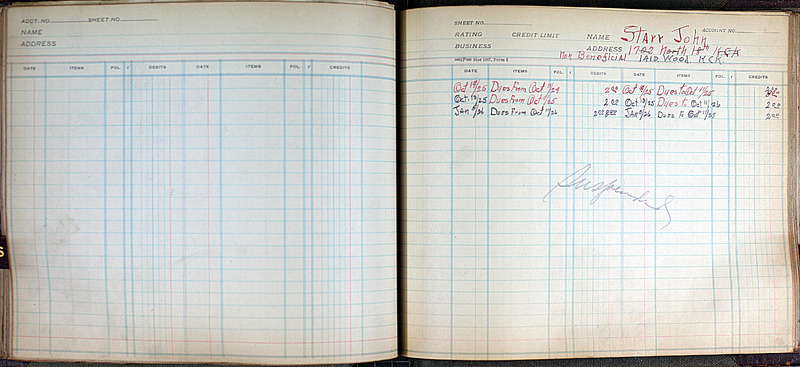 ACCT. NO. SHEET NO.
NAME
ADDRESS
DATE ITEMS FOL. √ DEBITS DATE ITEMS FOL. √ CREDITS
SHEET NO. ACCOUNT NO.
RATING CREDIT LIMIT NAME Starr John
BUSINESS ADDRESS 1722 North 18th KCK
Non Beneficial 1410 Wood KCK.
DATE ITEMS FOL. √ DEBITS DATE ITEMS FOL. √ CREDITS
Oct 18/25 Dues From Oct 11/24 2 00 Oct 18/25 Dues to Oct 11/25
Oct 18/25 Dues from Oct 11/25 2 00 Oct 18/25 Dues to Oct 11/26 2 00
Jan 8/26 Dues From Oct 11/26 Jan 8/26 Dues To Oct 11/27 2 00
Suspended